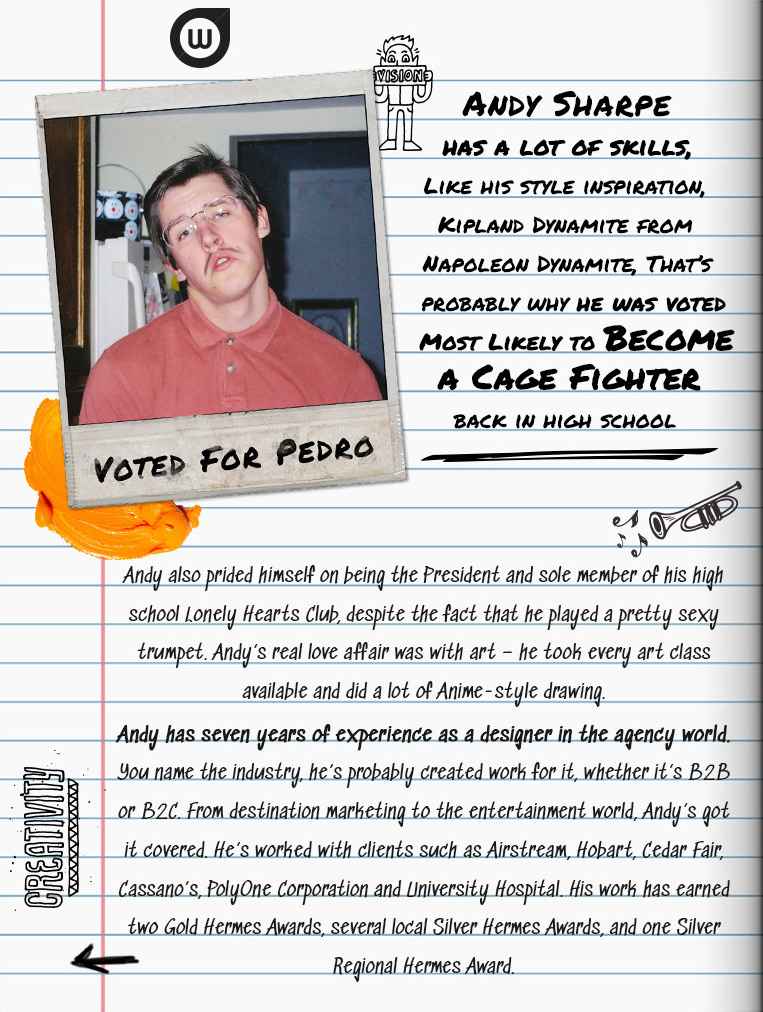 W
VISION
Andy Sharpe
has a lot of skills,
Like his style inspiration,
Kipland Dynamite from
Napoleon Dynamite, That's
probably why he was voted
Most Likely to Become
a Cage Fighter
back in high school
Voted For Pedro
Andy also prided himself on being the President and sole member of his high
school Lonely Hearts Club, despite the fact that he played a pretty sexy
trumpet. Andy's real love affair was with art – he took every art class
available and did a lot of Anime-style drawing.
Andy has seven years of experience as a designer in the agency world.
You name the industry, he's probably created work for it, whether it's B2B
or B2C. From destination marketing to the entertainment world, Andy's got
it covered. He's worked with clients such as Airstream, Hobart, Cedar Fair,
Cassano's, PolyOne Corporation and University Hospital. His work has earned
two Gold Hermes Awards, several local Silver Hermes Awards, and one Silver
Regional Hermes Award.
CREATIVITY